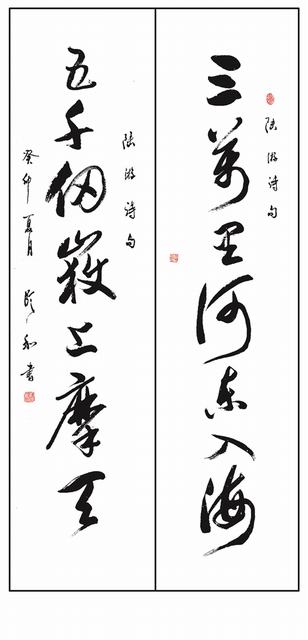 陆游诗句
三萬里河东入海
陆游诗句
五千仞嶽上摩天
癸卯夏月
和書